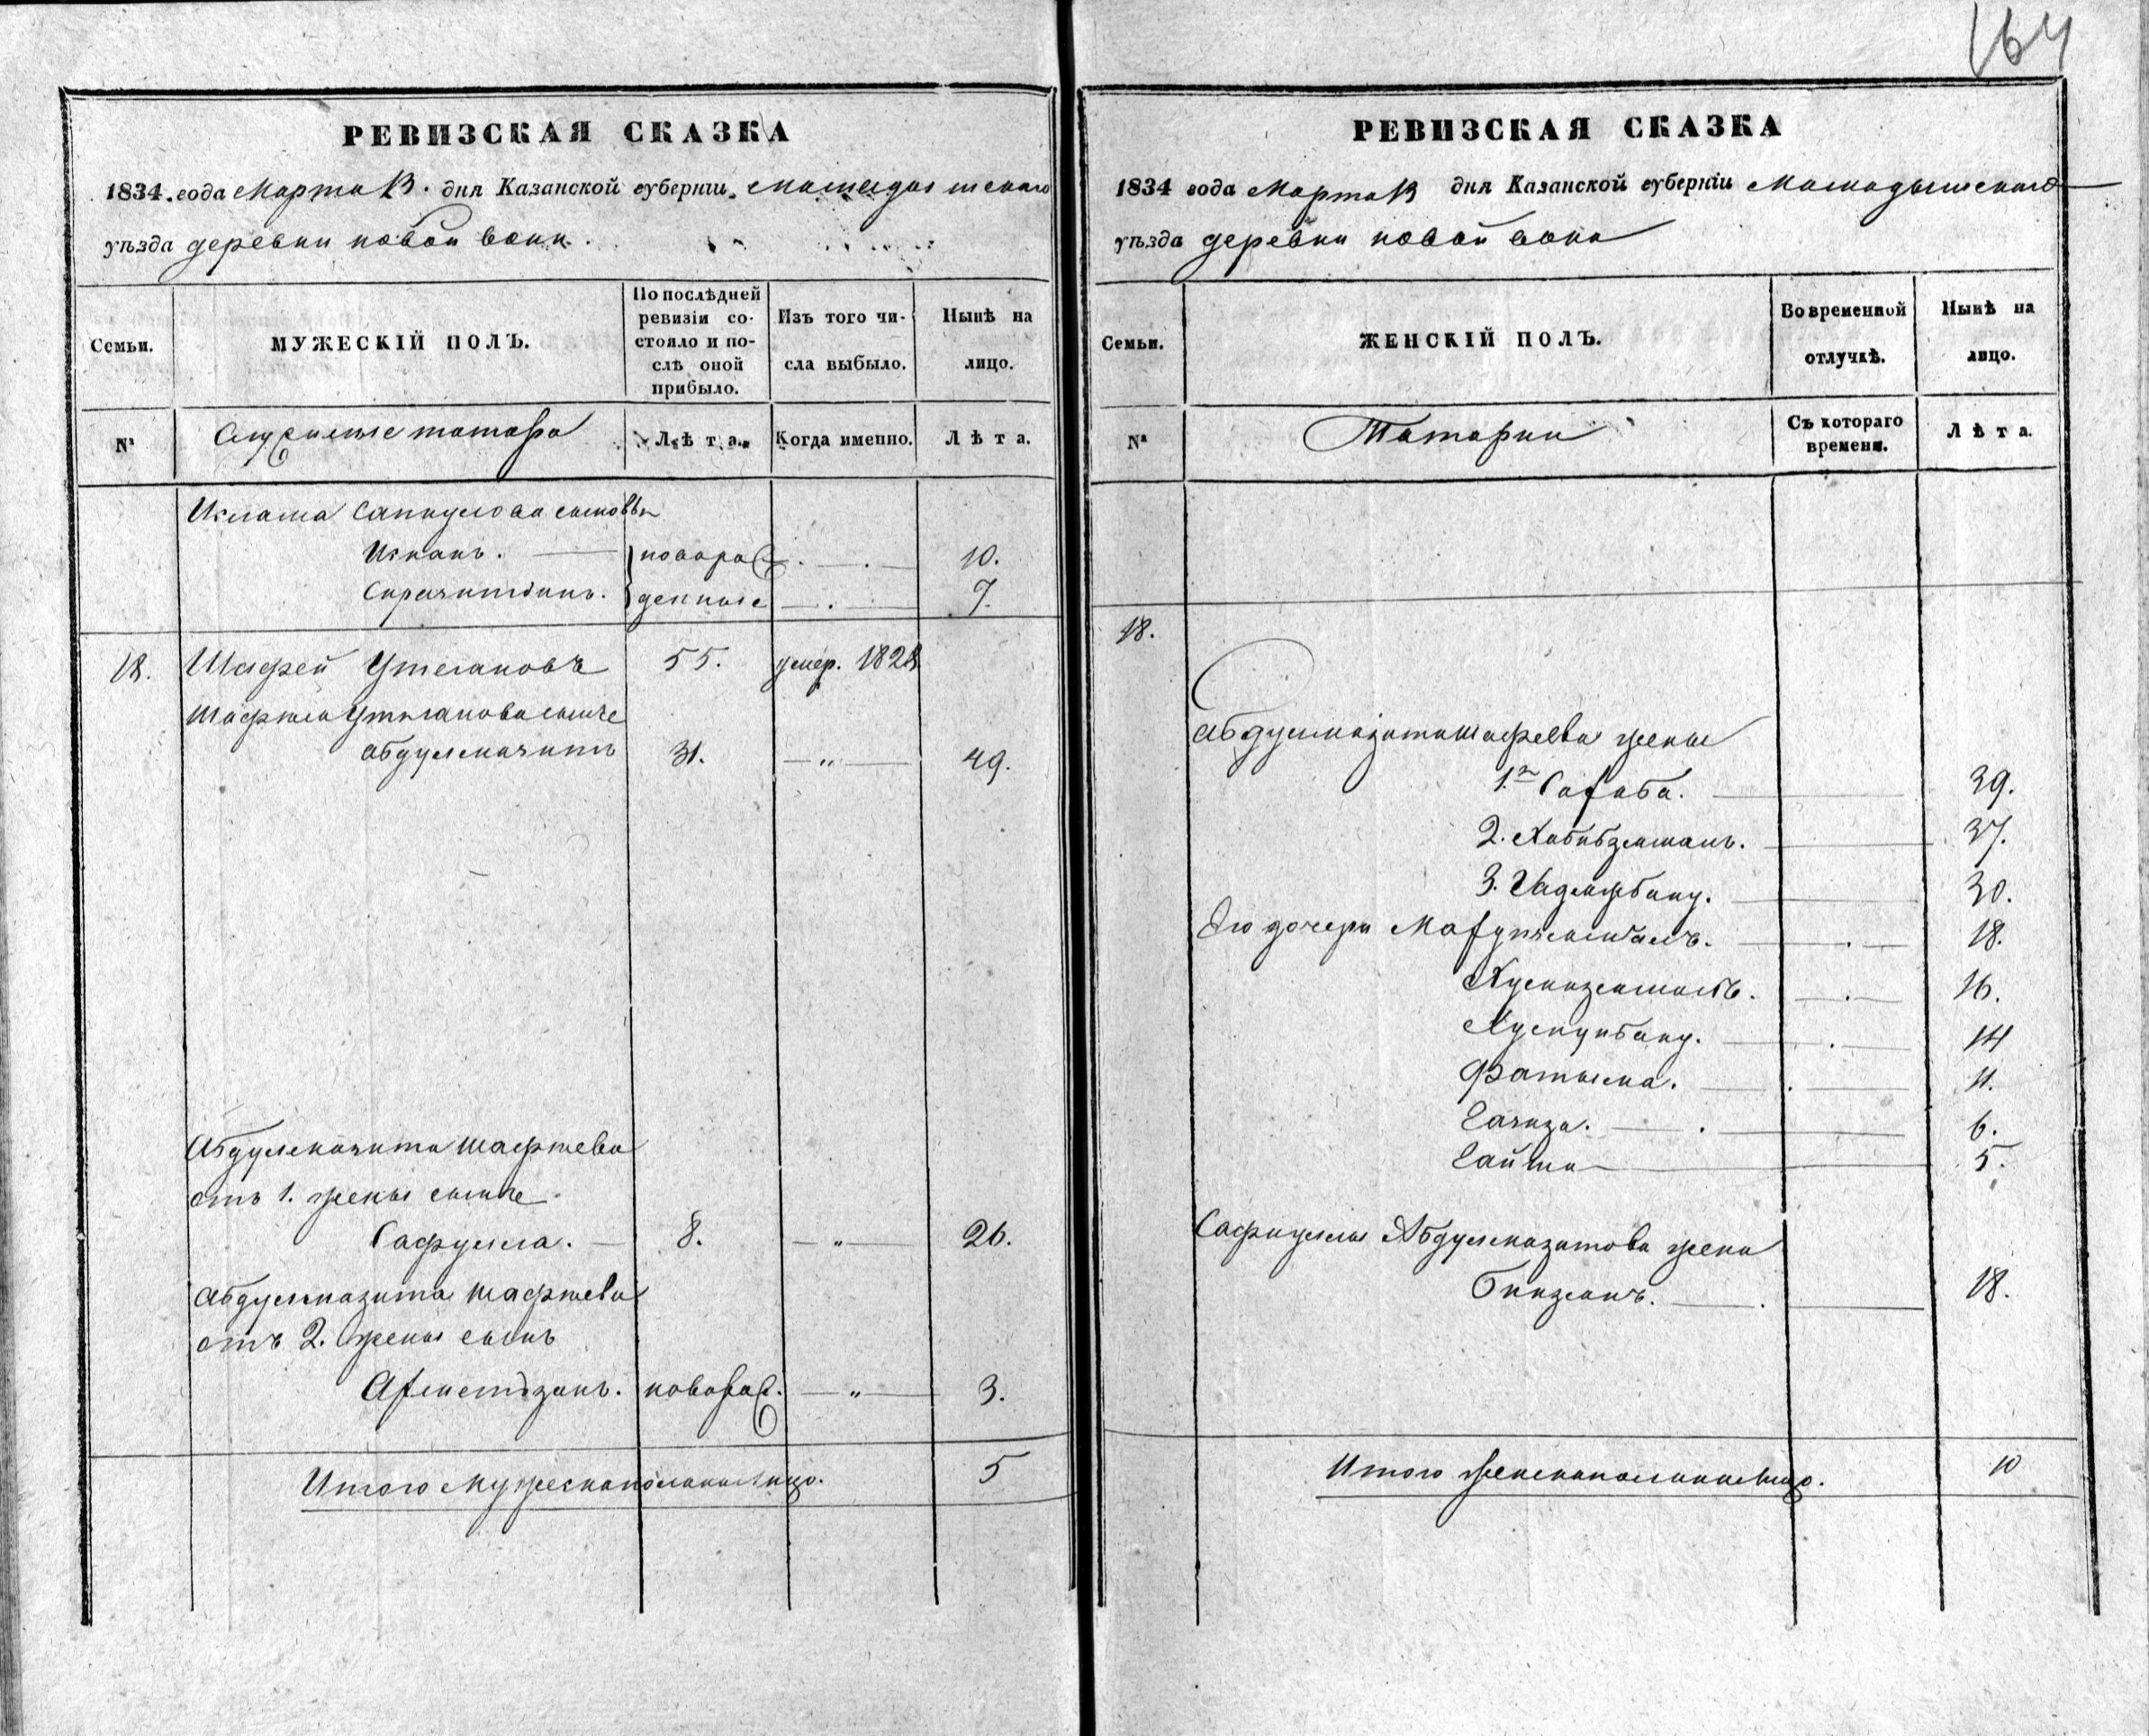 164
РЕВИЗСКАЯ СКАЗКА
1834. года Марта 13. дня Казанской губерніи. Мамадышскаго
уѣзда деревни новой
Семьи.
МУЖЕСКІЙ ПОЛЪ.
По послѣдней
ревизіи со-
стояло и по-
слѣ оной
прибыло.
Изъ того чи-
сла выбыло.
Нынѣ на
лицо.
№
Служилые татара
Лѣта.
Когда именно.
Лѣта.
сыновья
новорож
10.
денные
7.
18. Шафей Утегановъ 55. умер. 1828
Шафѣя Утяганова сынъ
Абдулмазитъ 31. — „ — 49.
Абдулмазита Шафѣева
отъ 1. жены сынъ
Сафулла. — 8. — „ — 26.
Абдулмазита Шафѣева
отъ 2. жены сынъ
Ахметзянъ. новорож. — „ — 3.
Итого мужеска пола на лицо. 5
РЕВИЗСКАЯ СКАЗКА
1834 года Марта 13 дня Казанской губерніи Мамадышскаго
уѣзда деревни новой
Семьи.
ЖЕНСКІЙ ПОЛЪ.
Во временной
отлучкѣ.
Нынѣ на
лицо.
№
Татарки
Съ котораго
времени.
Лѣта.
18.
Абдулмазита Шафеева жены
1.я 39.
2. 37.
3. 30.
Его дочери 18.
16.
14
Фатыма. 11.
6.
5.
Сафиуллы Абдулмазитова жена
18.
Итого женска пола на лицо. 10